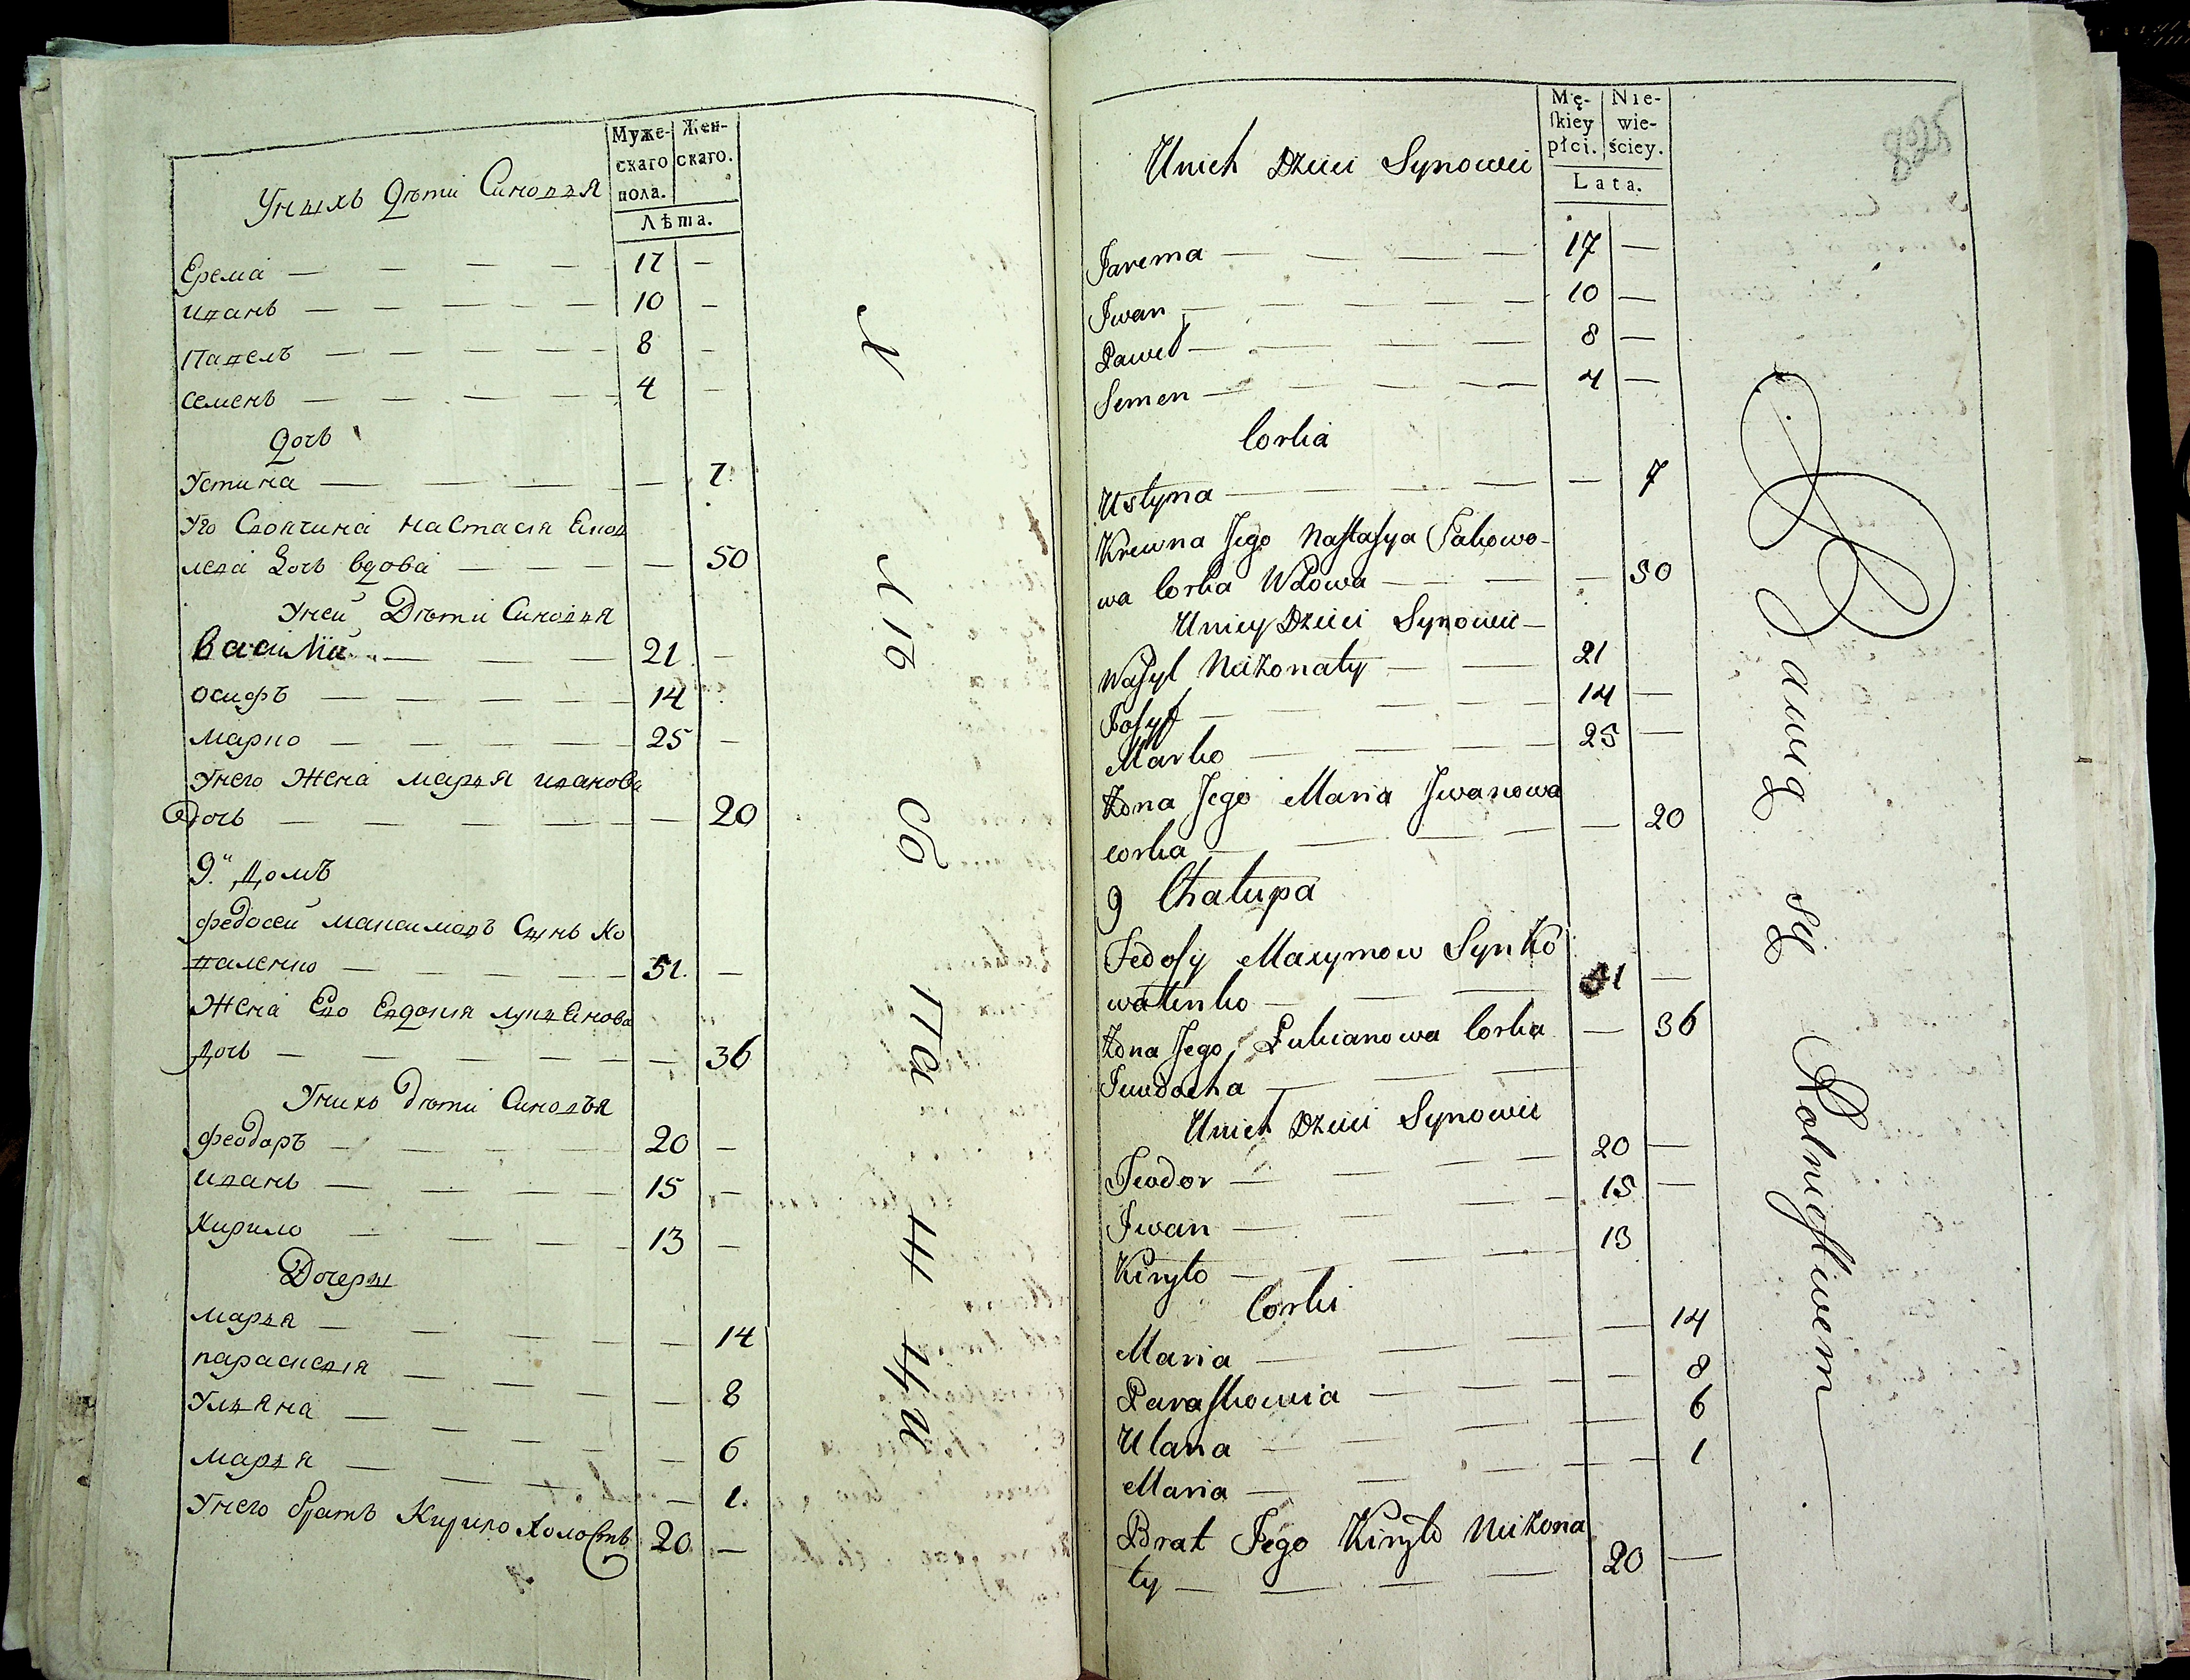 Муже-
скаго
пола.
Жен-
скаго.
Лѣта.
Унихъ Дѣти Синовя
Ерема — 17 —
иванъ — 10 —
Павелъ — 8 —
семенъ — 4 —
Дочь
Устина — 7
Уго Своячина настасия
Дочь вдова — 50
Уней Дѣти Синовя
Василий — 21 —
осифъ — 14
марко — 25 —
Унего Жена марья иванова
Дочь — 20
9." Домъ
Федосей максимовъ Сынъ Ко
валенко — 51. —
Жена Его Евдокия лукьянова
Дочь — 36
Унихъ дѣти Синовъя
Феодоръ — 20 —
иванъ — 15 —
Кирило — 13 —
Дочеры
марья — 14
параскевия — 8
Ульяна — 6
марья — 1.
Унего братъ Кирило холостъ 20 —
Mę-
ſkiey
płci.
Nie-
wie-
ściey.
Lata.
Unich Dzieci Synowie
Jarema — 17 —
Jwan — 10 —
Paweł — 8 —
Semen — 4 —
Corka
Ustyna — 7
Krewna Jego Naſtaſya Jakowo-
wa Corka Wdowa — 50
Uniey Dzieci Synowie —
Waſyl Nieżonaty — 21
Joſyf — 14 —
Marko — 25 —
Żona Jego Maria Jwanowa
corka — 20
9 Chałupa
Fedoſy Maxymow Syn Ko
walenko — 51 —
Żona Jego Łukianowa Corka — 36
Jewdocha —
Unich Dzieci Synowie
Teodor — 20 —
Jwan — 15 —
Kiryło — 13
Corki
Maria — 14
Paraſkowia — 8
Ulana — 6
Maria — 1
Brat Jego Kiryło Nieżona
ty — 20 —
Bawig się Rolnictwem
825